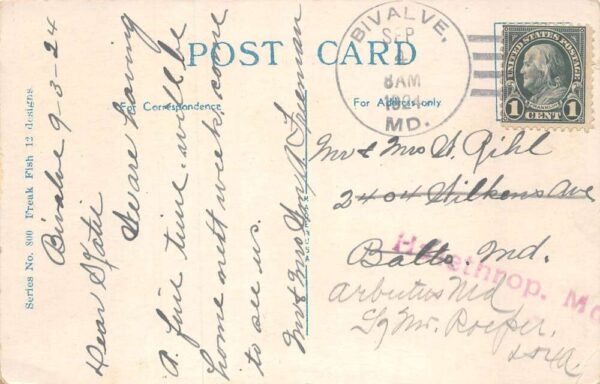 POST CARD
For Correspondence
For Address only
Series No. 800 Freak Fish 12 designs.
Bivalve 9-3-24
Dear Katie
We are having
a fine time. will be
home next week. come
to see us.
Mr & Mrs Wm Freeman
BIVALVE,
SEP
4
8AM
1924
MD.
UNITED STATES POSTAGE
FRANKLIN
1 CENT 1
Mr & Mrs H. Rihl
2404 Wilkens Ave
Balto. Md.
Halethrop. Md
Arbutus Md